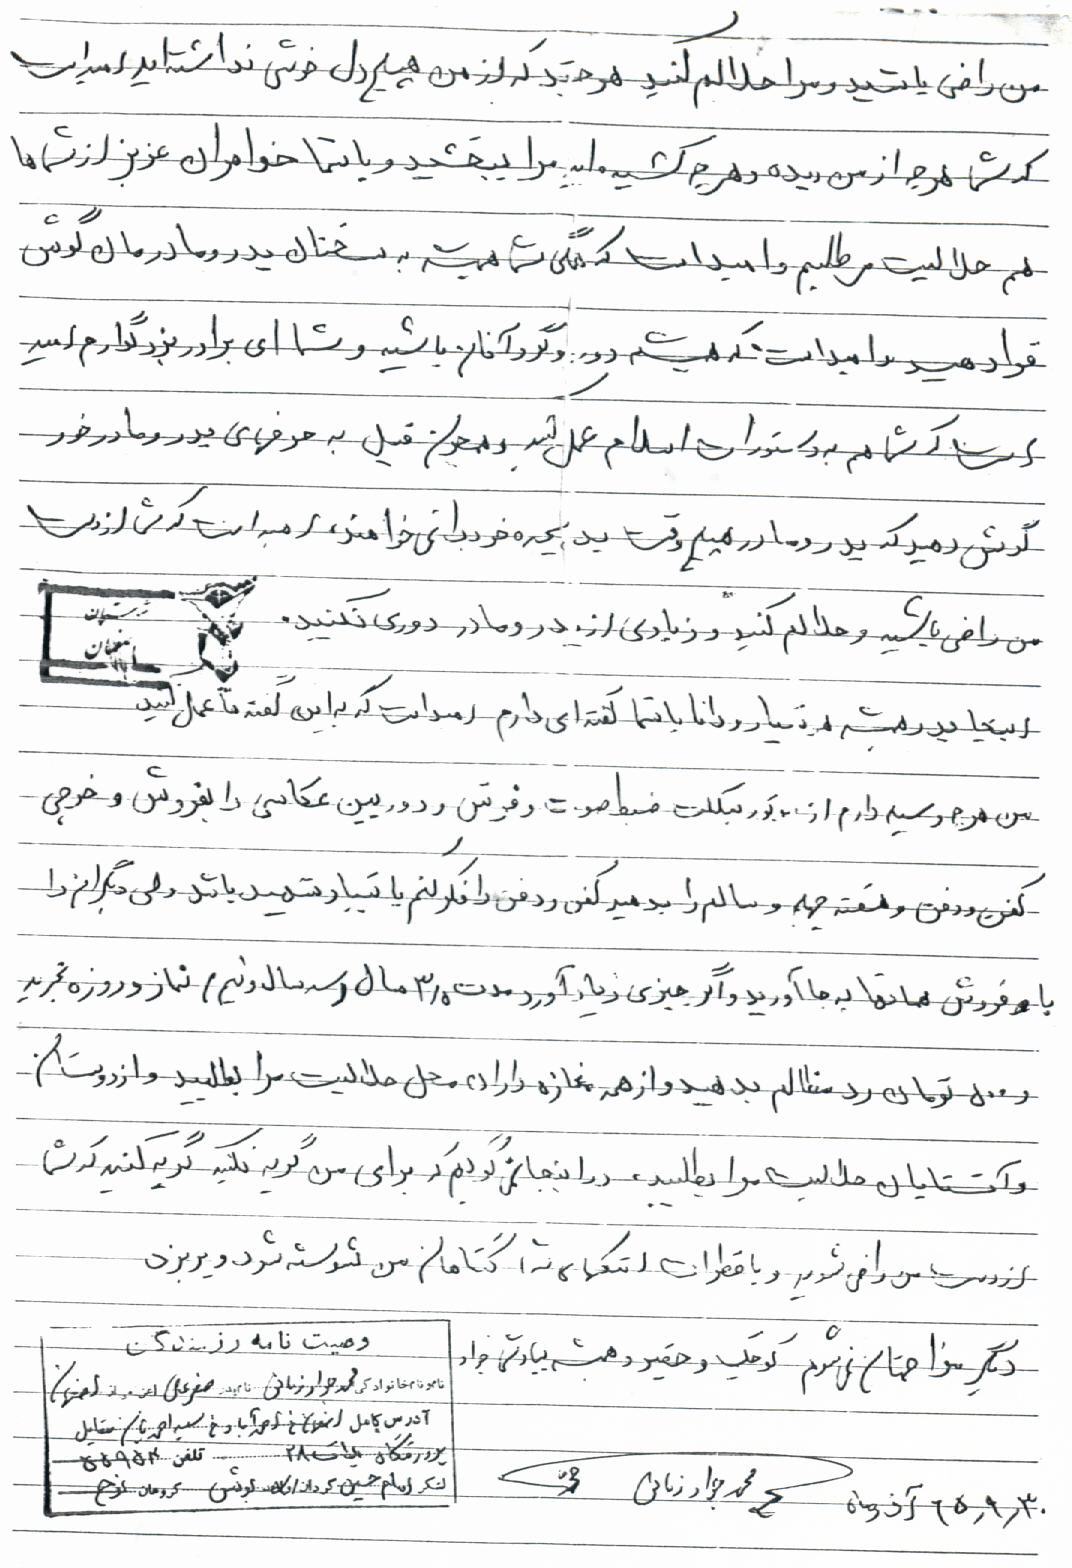 من راضی باشید و مرا حلالم کنید هر چند که از من هیچ دل خوشی نداشته اید امید است
که شما هر چه از من دیده و هر چه کشیده اید مرا ببخشید و با شما خواهران عزیز از شماها
هم حلالیت می طلبم و امید است که همگی شما همیشه به سخنان پدر و مادرمان گوش
قرار دهید و امید است که همیشه دور و گرد آنان باشید و شما ای برادر بزرگوارم امید
است که شما هم به دستورات اسلام عمل کنید و همچون قبل به حرفهای پدر و مادر خود
گوش دهید که پدر و مادر هیچ وقت بد بچه خود را نمی خواهند، امید است که شما از دست
من راضی باشید و حلالم کنید و زیادی از پدر و مادر دوری نکنید.
شهرستان
اصفهان
اینجا پدر همیشه هوشیار و دانا با شما گفته ای دارم امید است که به این گفته ها عمل کنید
من هر چه وسیله دارم از موتور سیکلت ضبط صوت و فرش و دوربین عکاسی را بفروش و خرجی
کفن و دفن و هفته چهله و سالم را بدهید کفن و دفن را فکر کنم با بنیاد شهید باشد ولی دیگران را
با فروش همانها به جا آورید و اگر چیزی زیاد آورد مدت ۳/۵ سال (سه سال و نیم) نماز و روزه بخرید
و ۵۰۰ تومان رد مظالم بدهید و از همه مغازه داران محل حلالیت مرا بطلبید و از دوستان
و آشنایان حلالیت مرا بطلبید، در اینجا نمی گویم که برای من گریه نکنید گریه کنید که شما
از دست من راضی شوید و با قطرات اشکهای شما گناهان من شسته شود و بریزد
دیگر مزاحمتان نمی شوم کوچک و حقیر و همیشه بیاد شما جواد
محمد جواد زمانی
۶۵٫۹٫۳۰ آذر ماه
وصیت نامه رزمندگان
نام و نام خانوادگی محمد جواد زمانی نام پدر صفرعلی اعزامی از اصفهان
آدرس کامل اصفهان خ احمدآباد خ سید احمدیان مقابل
پرورشگاه پلاک ۲۸ تلفن ۵۵۹۵۴
لشکر امام حسین گردان یونس گروهان نوح